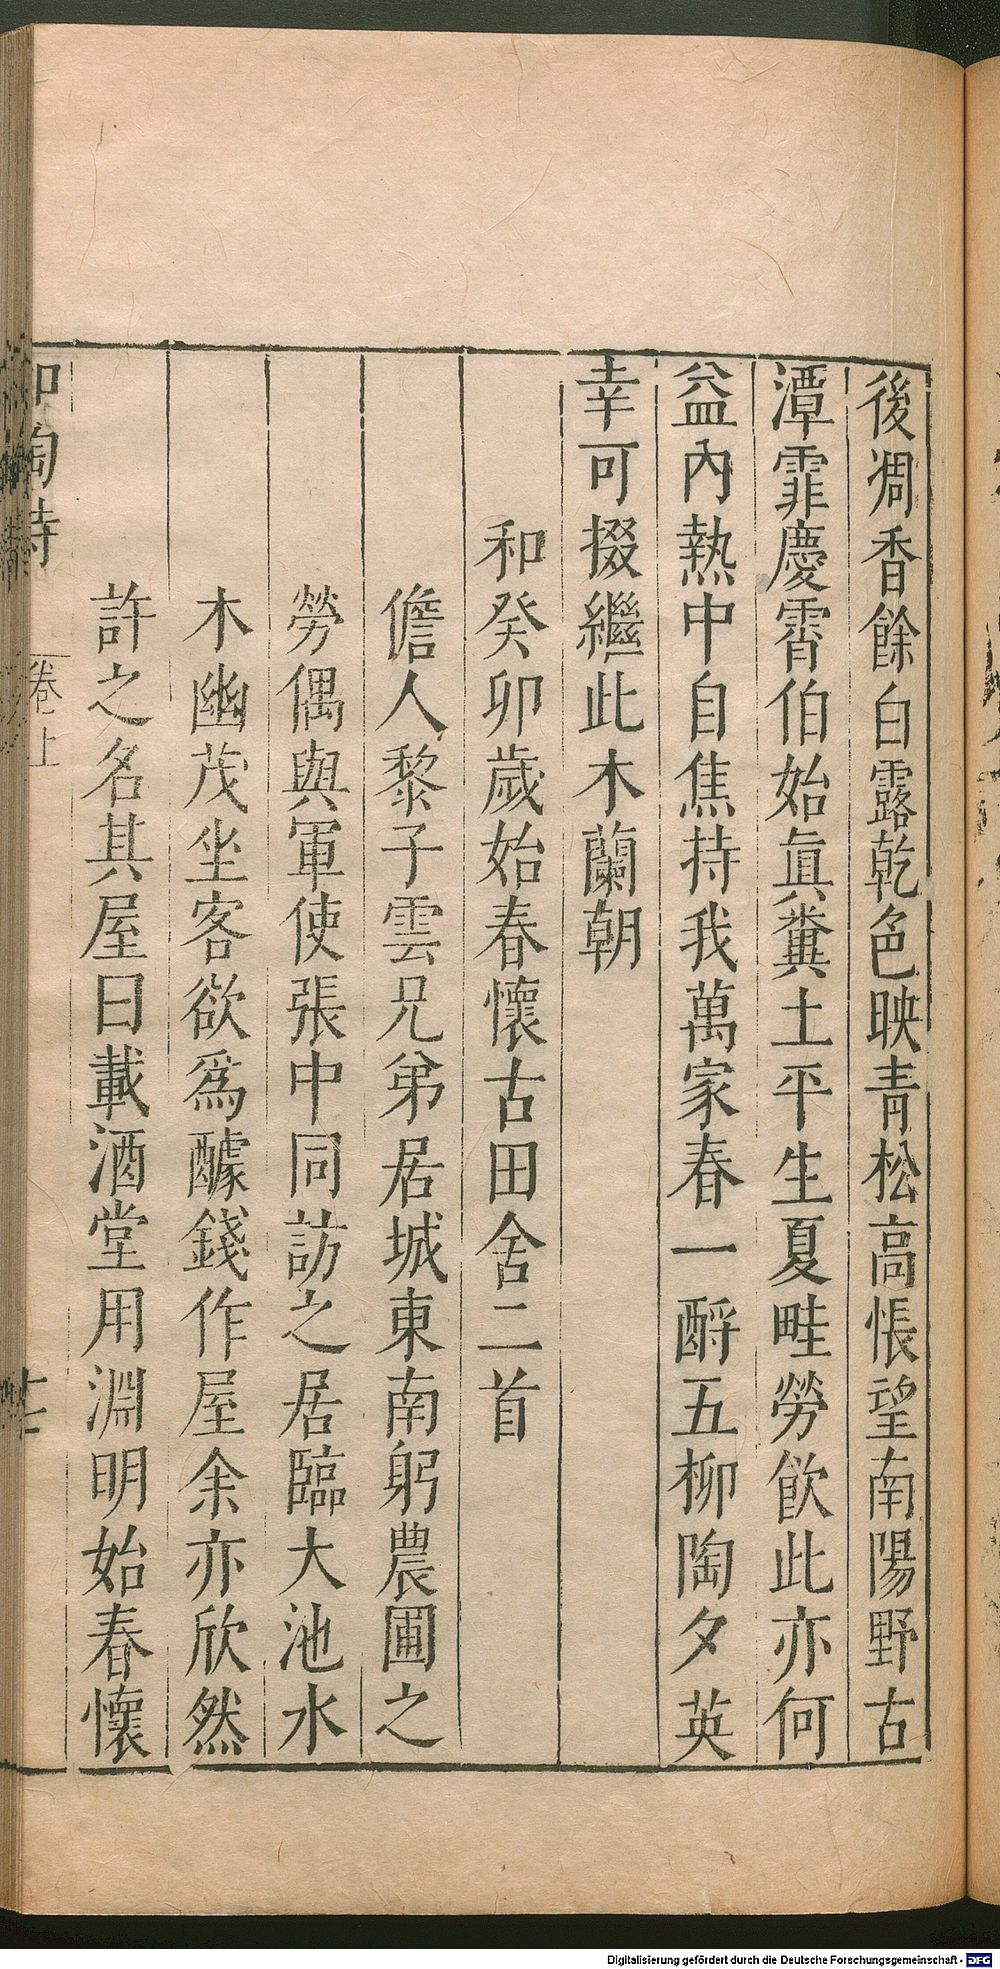 後凋香餘白露乾色映青松高悵望南陽野古
潭霏慶霄伯始眞糞土平生夏畦勞飲此亦何
益內熱中自焦持我萬家春一酹五柳陶夕英
幸可掇繼此木蘭朝
和癸卯歲始春懷古田舍二首
儋人黎子雲兄弟居城東南躬農圃之
勞偶與軍使張中同訪之居臨大池水
木幽茂坐客欲爲醵錢作屋余亦欣然
許之名其屋曰載酒堂用淵明始春懷
和陶詩
卷上
Digitalisierung gefördert durch die Deutsche Forschungsgemeinschaft - DFG